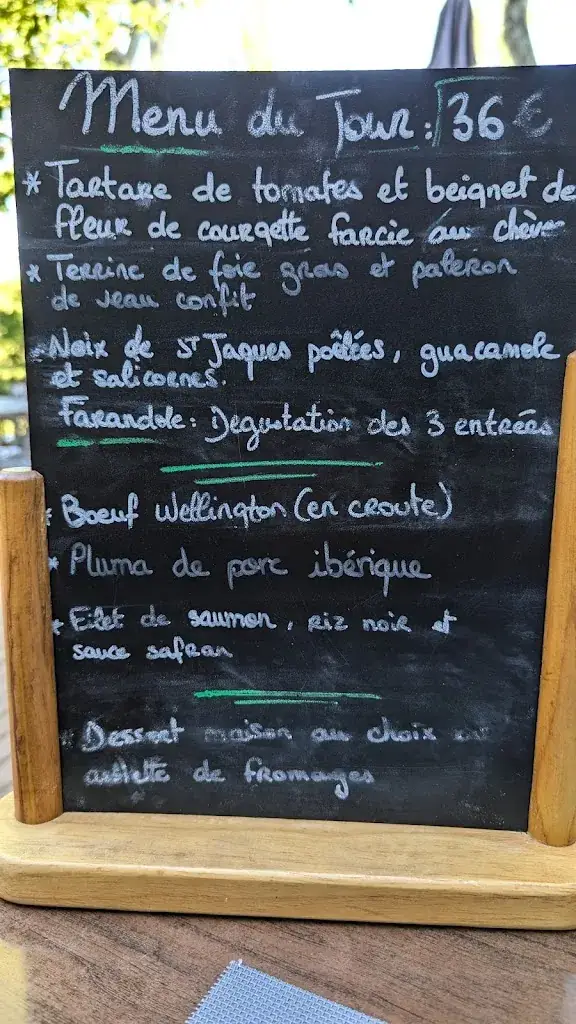 Menu du Jour : 36 €
* Tartare de tomates et beignet de
fleur de courgette farcie au chèvre
* Terrine de foie gras et paleron
de veau confit
* Noix de St Jaques poêlées, guacamole
et salicornes.
Farandole : Dégustation des 3 entrées
* Boeuf Wellington (en croute)
* Pluma de porc ibérique
* Filet de saumon, riz noir et
sauce safran
* Dessert maison au choix ou
assiette de fromages